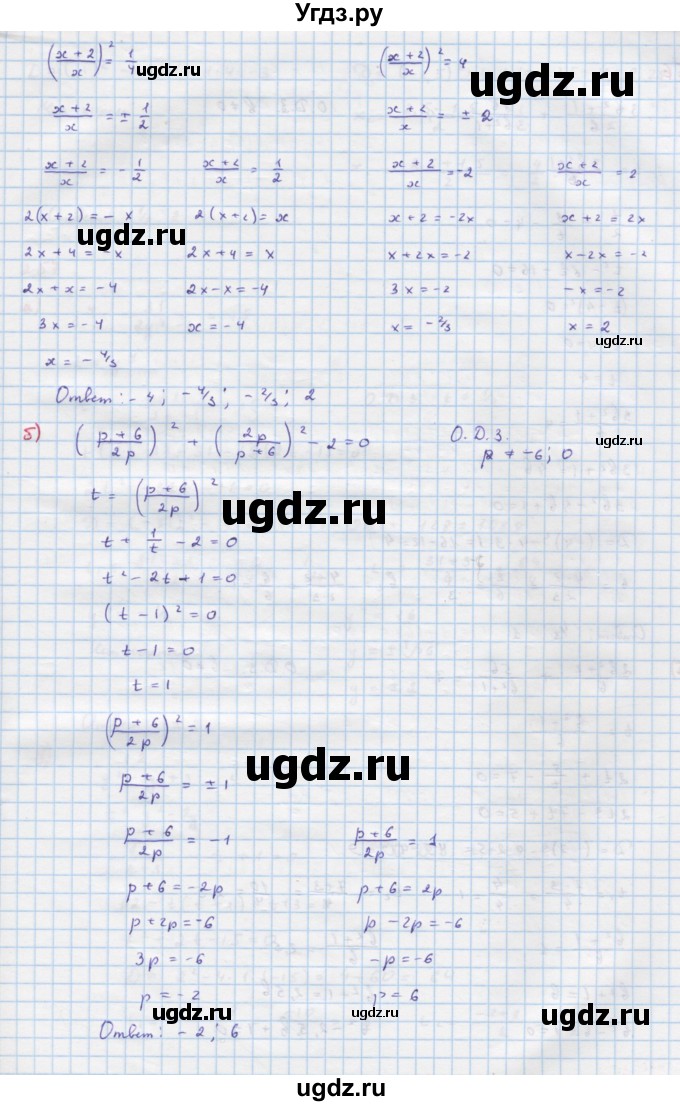 Угдз.ру
((x+2)/x)² = 1/4 ((x+2)/x)² = 4
ugdz.ru ugdz.ru
(x+2)/x = ± 1/2 (x+2)/x = ± 2
(x+2)/x = - 1/2 (x+2)/x = 1/2 (x+2)/x = -2 (x+2)/x = 2
2(x+2) = - x 2(x+2) = x x+2 = -2x x+2 = 2x
ugdz.ru
2x+4 = -x 2x+4 = x x+2x = -2 x-2x = -2
2x+x = -4 2x-x = -4 3x = -2 -x = -2
3x = -4 x = -4 x = -2/3 x = 2
ugdz.ru
x = - 4/3
Ответ: -4; -4/3; -2/3; 2
б) ((p+6)/2p)² + (2p/(p+6))² - 2 = 0 О.Д.З.
p ≠ -6; 0
ugdz.ru
t = ((p+6)/2p)²
ugdz.ru
t + 1/t - 2 = 0
t² - 2t + 1 = 0
ugdz.ru
(t-1)² = 0
t-1 = 0
t = 1
ugdz.ru
((p+6)/2p)² = 1
ugdz.ru
(p+6)/2p = ± 1
(p+6)/2p = -1 (p+6)/2p = 1
ugdz.ru
p+6 = -2p p+6 = 2p
p+2p = -6 p - 2p = -6
3p = -6 -p = -6
p = -2 p = 6
ugdz.ru ugdz.ru ugdz.ru
Ответ: -2; 6
ugdz.ru